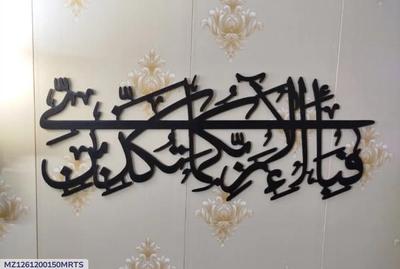 فبأي آلاء ربكما تكذبان
MZ1261200150MRTS